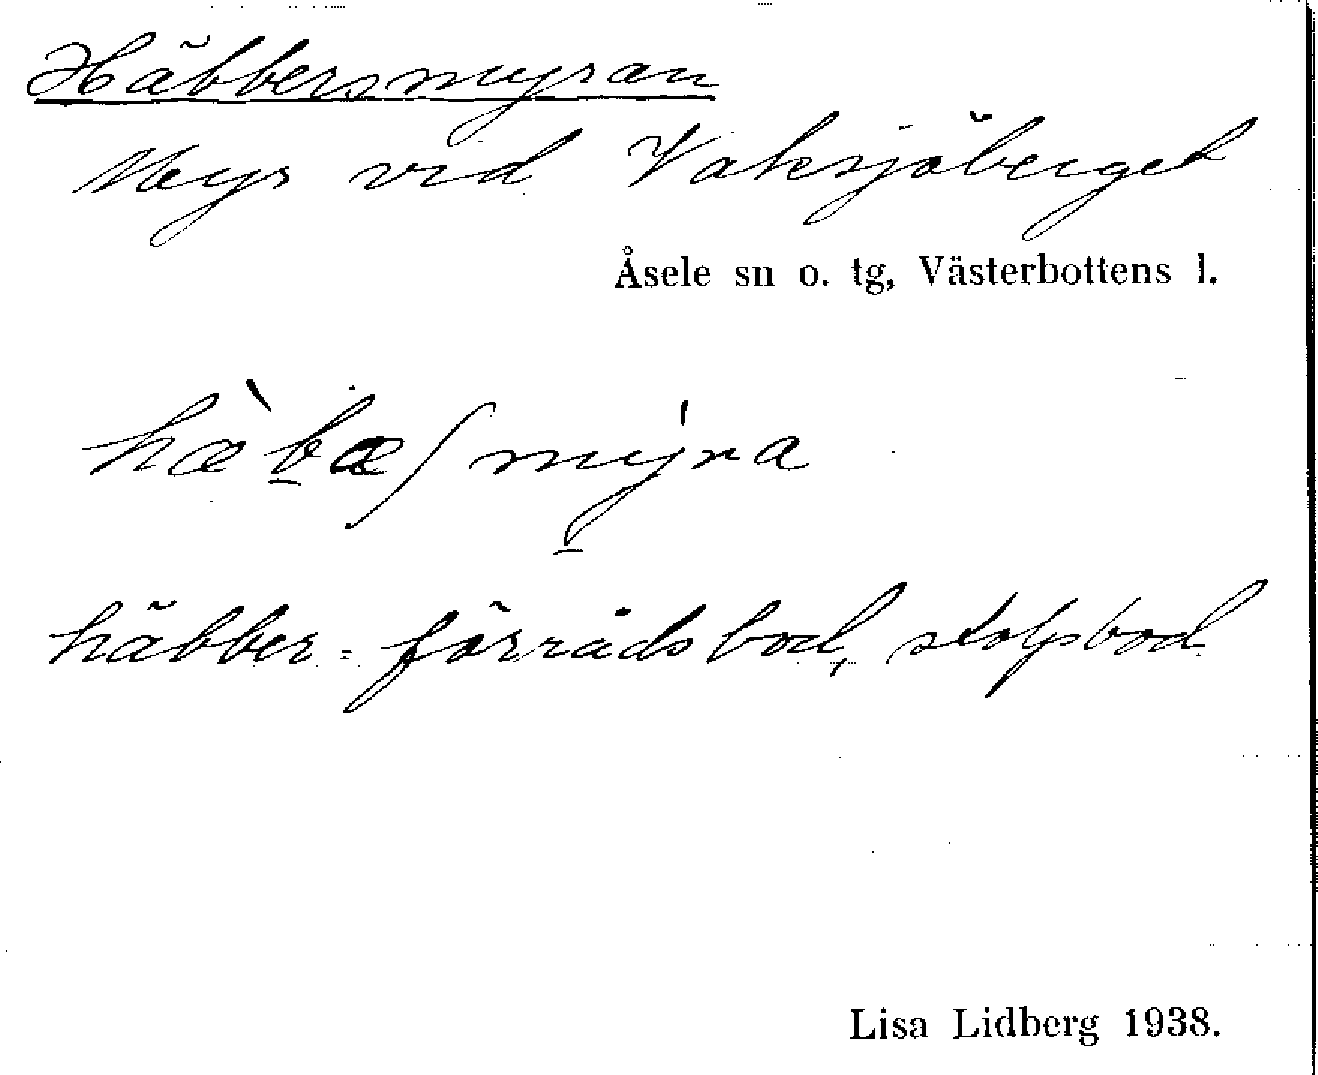 Häbbersmyran
Myr vid Vaksjöberget
Åsele sn o. tg, Västerbottens l.
hæ̀b̲æʃmý̲ra
häbber = förrådsbod, stolpbod
Lisa Lidberg 1938.